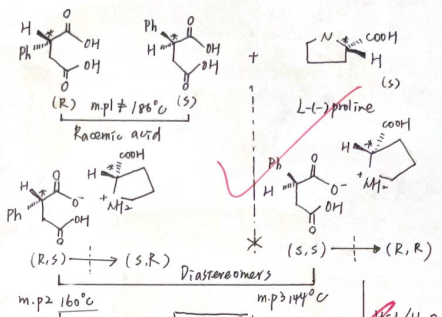 Ph
H * OH
Ph O
O OH
H * OH
O OH
+
N * COOH
H
(R) m.pl ≠ 186°C (S)
(S)
Racemic acid
L-(-) proline
H * O
O-
Ph OH
O
H * COOH
+NH2
Ph O
H * O-
OH
O
H * COOH
+NH2
(R,S) → (S,R)
(S,S) → (R,R)
Diastereomers
m.p2 160°C
m.p3,144°C